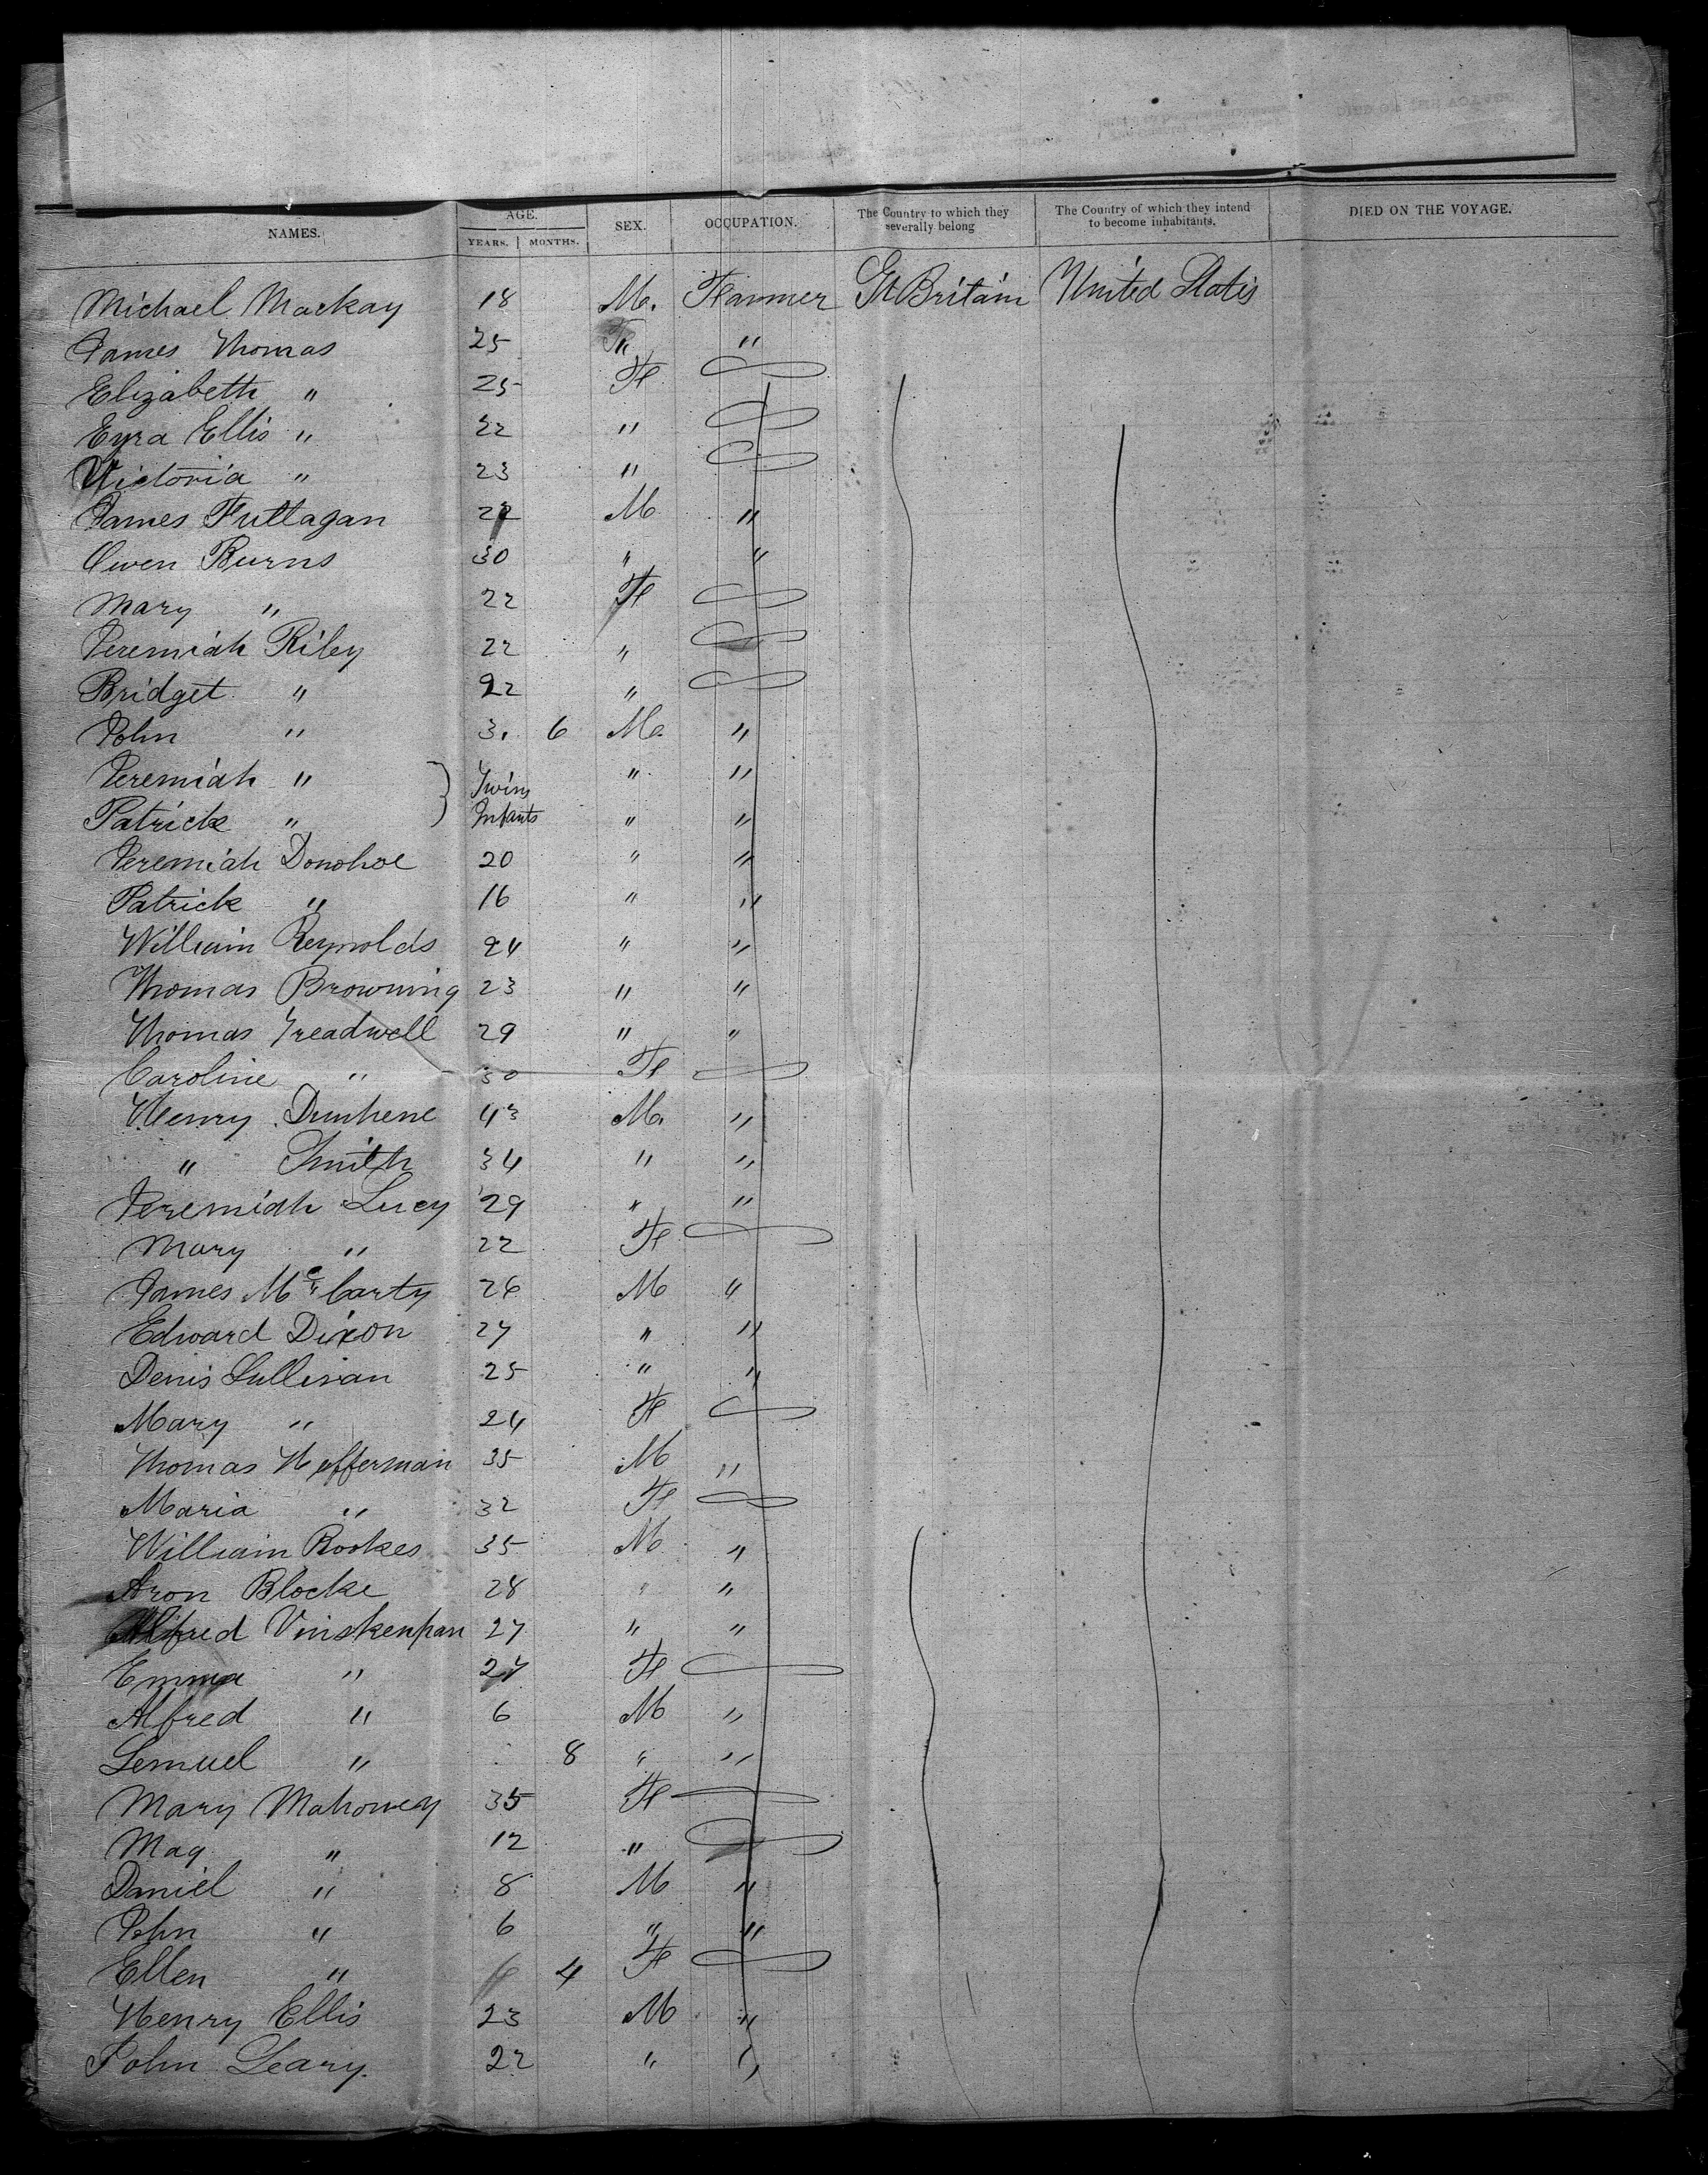 NAMES. AGE. YEARS. MONTHS. SEX. OCCUPATION. The Country to which they severally belong The Country of which they intend to become inhabitants. DIED ON THE VOYAGE.
Michael Mackay 18 M. Farmer Gt Britain United States
James Thomas 25 " "
Elizabeth " 25 F
Eyra Ellis " 22 "
Victoria " 23 "
James Fullagan 22 M "
Owen Burns 30 " "
Mary " 22 F
Jeremiah Riley 22 "
Bridget " 22 "
John " 3. 6 M. "
Jeremiah " } Twins " "
Patrick " } Infants " "
Jeremiah Donohoe 20 " "
Patrick " 16 " "
William Reynolds 24 " "
Thomas Browning 23 " "
Thomas Treadwell 29 " "
Caroline " 30 F
Henry Dunhene 43 M. "
" Smith 34 " "
Jeremiah Lucy 29 " "
Mary " 22 F
James McCarty 26 M "
Edward Dixon 27 " "
Denis Sullivan 25 " "
Mary " 24 F
Thomas Hefferman 35 M "
Maria " 32 F
William Rookes 35 M "
Aron Blocke 28 " "
Alfred Vinskenpan 27 " "
Emma " 27 F
Alfred " 6 M "
Lemuel " 8 " "
Mary Mahoney 35 F
Mag " 12 "
Daniel " 8 M "
John " 6 " "
Ellen " 4 F
Henry Ellis 23 M "
John Leary. 22 " "